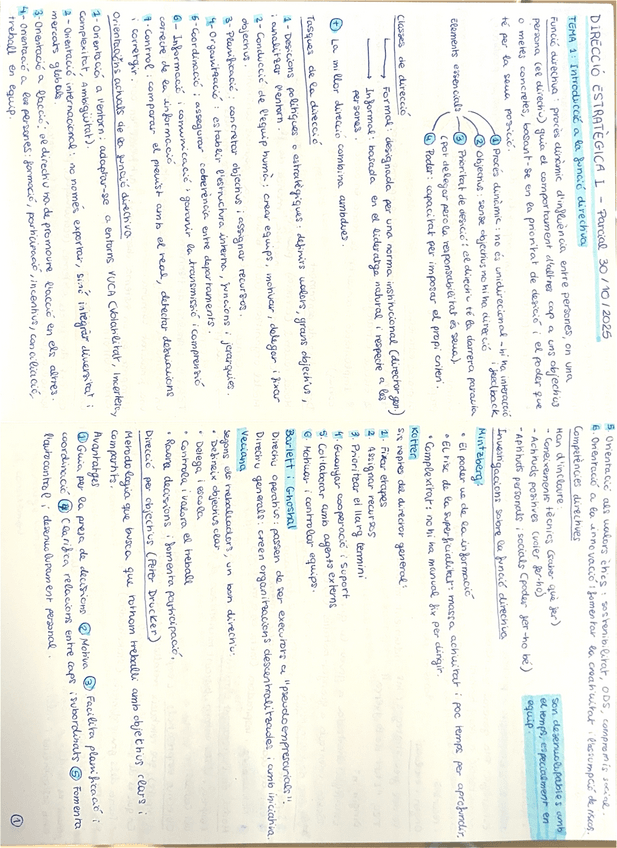 DIRECCIÓ ESTRATÈGICA I - Parcial 30/10/2025
TEMA 1: Introducció a la funció directiva
Funció directiva: procés dinàmic d'influència entre persones, on una
persona (el directiu) guia el comportament d'altres cap a uns objectius
o metes concretes, basant-se en la prioritat de decisió i el poder que
té per la seva posició.
Elements essencials
① Procés dinàmic: no és unidireccional - hi ha interacció i feedback
② Objectius: sense objectiu no hi ha direcció
③ Prioritat de decisió: el directiu té la darrera paraula
(Pot delegar però la responsabilitat és seva)
④ Poder: capacitat per imposar el propi criteri.
Classes de direcció
Formal: designada per una norma institucional (director gen)
Informal: basada en el lideratge natural i respecte a les
persones.
La millor direcció combina ambdues.
Tasques de la direcció
1- Decisions polítiques o estratègiques: definir valors, grans objectius,
i analitzar l'entorn.
2- Conducció de l'equip humà: crear equips, motivar, delegar i fixar
objectius.
3- Planificació: concretar objectius i assignar recursos.
4- Organització: establir l'estructura interna, funcions i jerarquies.
5- Coordinació: assegurar coherència entre departaments.
6- Informació i comunicació: garantir la transmissió i comprensió
correcte de la informació
7- Control: comparar el previst amb el real, detectar desviacions
i corregir.
Orientacions actuals de la funció directiva
1- Orientació a l'entorn: adaptar-se a entorns VUCA (Volatilitat, Incertesa,
Complexitat, Ambigüitat).
2- Orientació internacional: no només exportar, sinó integrar diversitat i
mercats globals.
3- Orientació a l'acció: el directiu ha de promoure l'acció en els altres.
4- Orientació a les persones: formació, participació, incentius, conciliació,
treball en equip.
5 Orientació als valors ètics: sostenibilitat, ODS, compromís social.
6 Orientació a la innovació: fomentar la creativitat i l'assumpció de riscos.
Competències directives
Han d'incloure:
- Coneixements tècnics (saber que fer)
- Actituds positives (voler fer-ho)
- Aptituds personals i socials (Poder fer-ho bé)
Són desenvolupables amb
el temps, especialment en
equip.
Investigacions sobre la funció directiva
Mintzberg:
• El poder ve de la informació
• El risc de la superficialitat: massa activitat i poc temps per aprofundir.
• Complexitat: no hi ha manual fix per dirigir.
Kotter
Sis reptes del director general:
1. Fixar etapes
2. Assignar recursos
3. Prioritzar el llarg termini
4. Guanyar cooperació i suport
5. Col·laborar amb agents externs
6. Motivar i controlar equips.
Barlett i Ghoshal
Directiu operatiu: passen de ser executors a "pseudoempresarials".
Directiu generals: creen organitzacions descentralitzades i amb iniciativa.
Veciana
segons els treballadors, un bon directiu:
• Defineix objectius clar
• Delega i escolta
• Controla i valora el treball
• Raona decisions i fomenta participació.
Direcció per objectius (Peter Drucker)
Metodologia que busca que tothom treballi amb objectius clars i
compartits.
Avantatges
① Guia per la presa de decisions ② Motiva ③ Facilita planificació i
coordinació ④ Clarifica relacions entre caps i subordinats ⑤ Fomenta
l'autocontrol i desenvolupament personal.
①